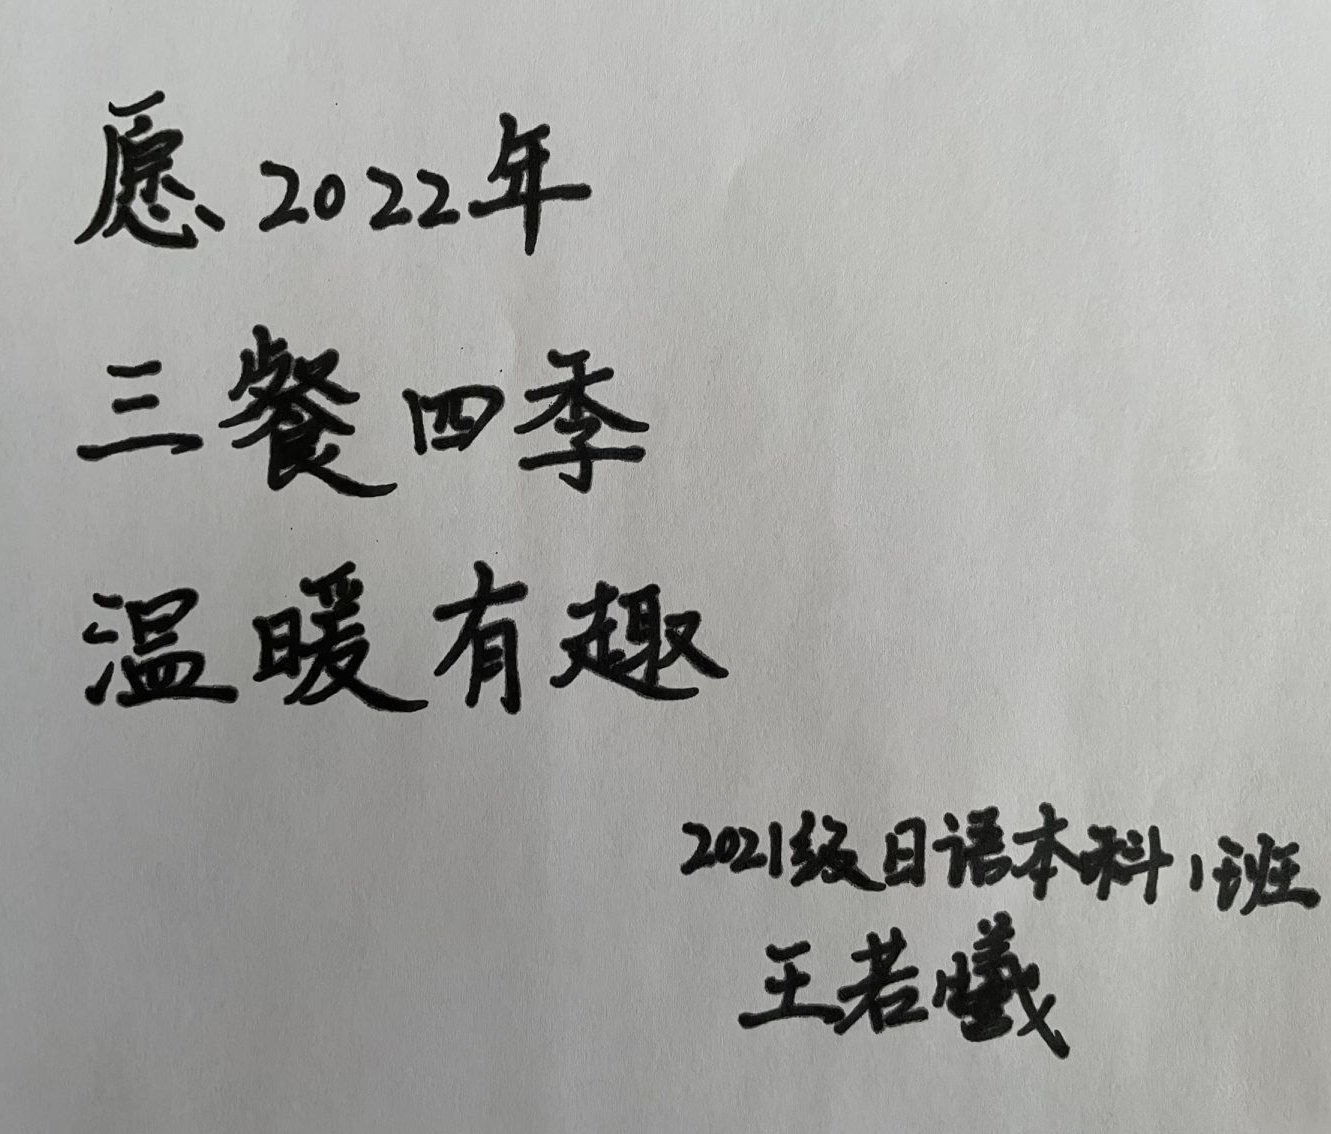 愿2022年
三餐四季
温暖有趣
2021级日语本科1班
王若曦